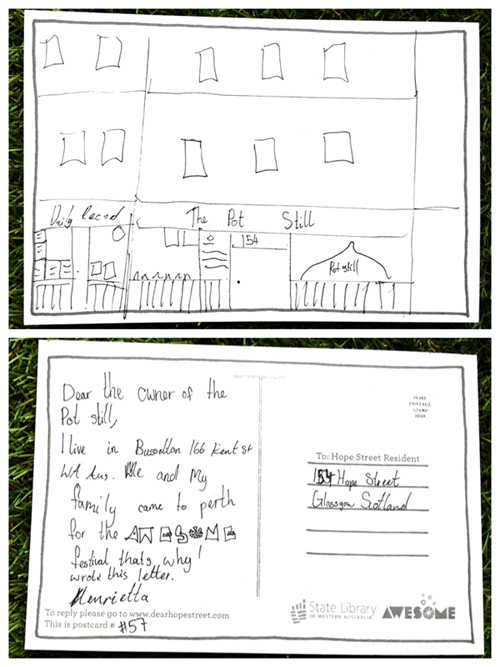 Daily Record
The Pot Still
154
Pot still
Dear the owner of the
Pot still,
I live in Busselton 166 Kent st
WA Aus. Me and My
family came to perth
for the AWESOME
festival thats why I
wrote this letter.
Henrietta
To reply please go to www.dearhopestreet.com
This is postcard # #57
PLACE
POSTAGE
STAMP
HERE
To: Hope Street Resident
154 Hope Street
Glasgow Scotland
State Library
OF WESTERN AUSTRALIA
AWESOME